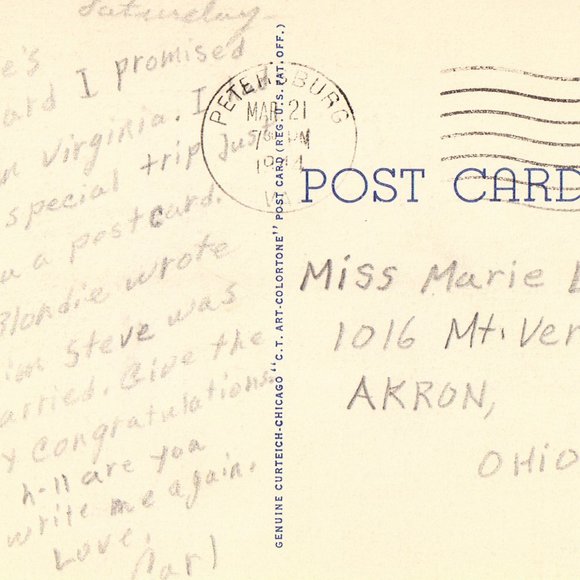 Saturday
e's
ard I promised
m Virginia. I had
special trip just
u a postcard.
Blondie wrote
im Steve was
arried. Give the
y congratulations.
h-ll are you
write me again.
Love,
GENUINE CURTEICH-CHICAGO "C.T. ART-COLORTONE" POST CARD (REG. U.S. PAT. OFF.)
PETERSBURG
MAR 21
PM
1944
POST CARD
Miss Marie
1016 Mt. Ver
AKRON,
OHIO